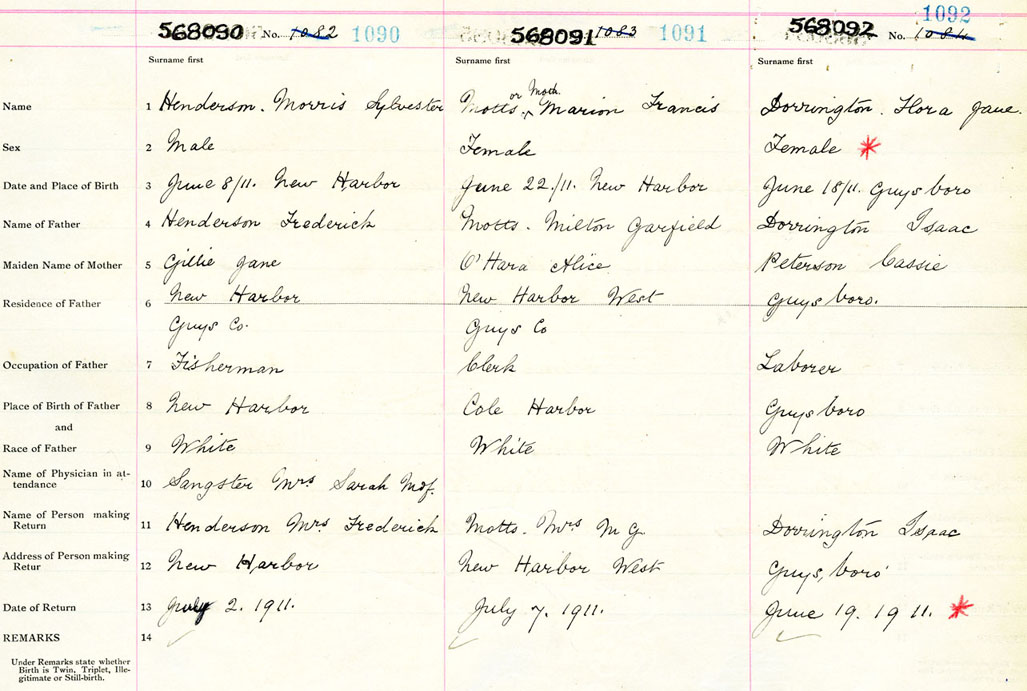 1092
568090 No. 1082 1090 568091 1083 1091 568092 No. 1084
Surname first Surname first Surname first
Name 1 Henderson. Morris Sylvester Motts or Moth. Marion Francis Dorrington. Flora Jane.
Sex 2 Male Female Female *
Date and Place of Birth 3 June 8/11. New Harbor June 22./11. New Harbor June 18/11. Guysboro
Name of Father 4 Henderson Frederick Motts. Milton Garfield Dorrington Isaac
Maiden Name of Mother 5 Gillie Jane O'Hara Alice Peterson Cassie
Residence of Father 6 New Harbor New Harbor West Guysboro.
Guys Co. Guys Co
Occupation of Father 7 Fisherman Clerk Laborer
Place of Birth of Father 8 New Harbor Cole Harbor Guysboro
and
Race of Father 9 White White White
Name of Physician in at-
tendance 10 Sangster Mrs Sarah Mdf.
Name of Person making
Return 11 Henderson Mrs Frederick Motts. Mrs M G. Dorrington Isaac
Address of Person making
Retur 12 New Harbor New Harbor West Guysboro
Date of Return 13 July 2. 1911. July 7. 1911. June 19. 1911. *
REMARKS 14
Under Remarks state whether
Birth is Twin, Triplet, Ille-
gitimate or Still-birth.